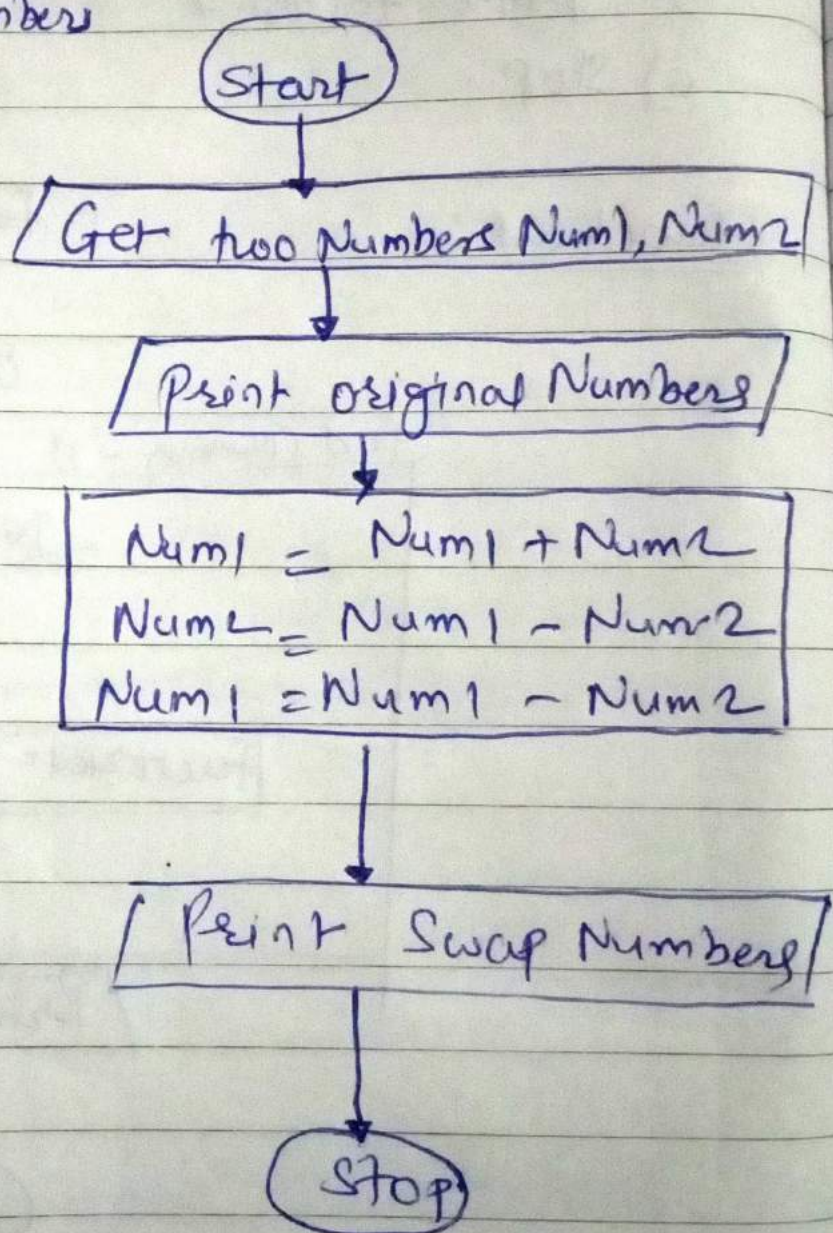 Start
Get two Numbers Num1, Num2
Print original Numbers
Num1 = Num1 + Num2
Num2 = Num1 - Num2
Num1 = Num1 - Num2
Print Swap Numbers
Stop